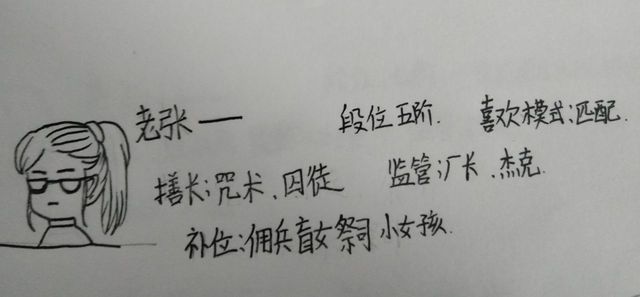 老张一 段位五阶. 喜欢模式:匹配.
擅长:咒术、囚徒 监管:厂长、杰克.
补位:佣兵盲女祭司 小女孩.